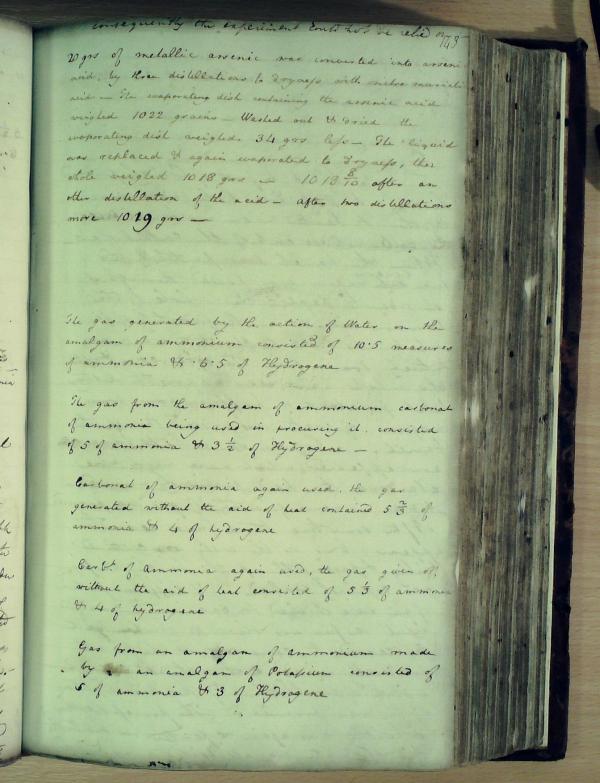 consequently the experiment could not be relied on
143
20 grs of metallic arsenic was converted into arsenic
acid, by three distillations to dryness with nitro muriatic
acid — The evaporating dish containing the arsenic acid
weighed 1022 grains — Washed out & dried the
evaporating dish weighed 34 grs less — The liquid
was replaced & again evaporated to dryness, the
whole weighed 1018 grs — 1018 8/10 after an
other distillation of the acid — after two distillations
more 1019 grs —
The gas generated by the action of Water on the
amalgam of ammonium consisted of 10.5 measures
of ammonia & 5.5 of Hydrogene
The gas from the amalgam of ammonium carbonat
of ammonia being used in procuring it, consisted
of 5 of ammonia & 3 1/2 of Hydrogene —
Carbonat of ammonia again used, the gas
generated without the aid of heat contained 5 2/3 of
ammonia & 4 of hydrogene
Carbt. of Ammonia again used, the gas given off,
without the aid of heat consisted of 5 1/3 of ammonia
& 4 of hydrogene
Gas from an amalgam of ammonium made
by an amalgam of Potassium consisted of
5 of ammonia & 3 of Hydrogene